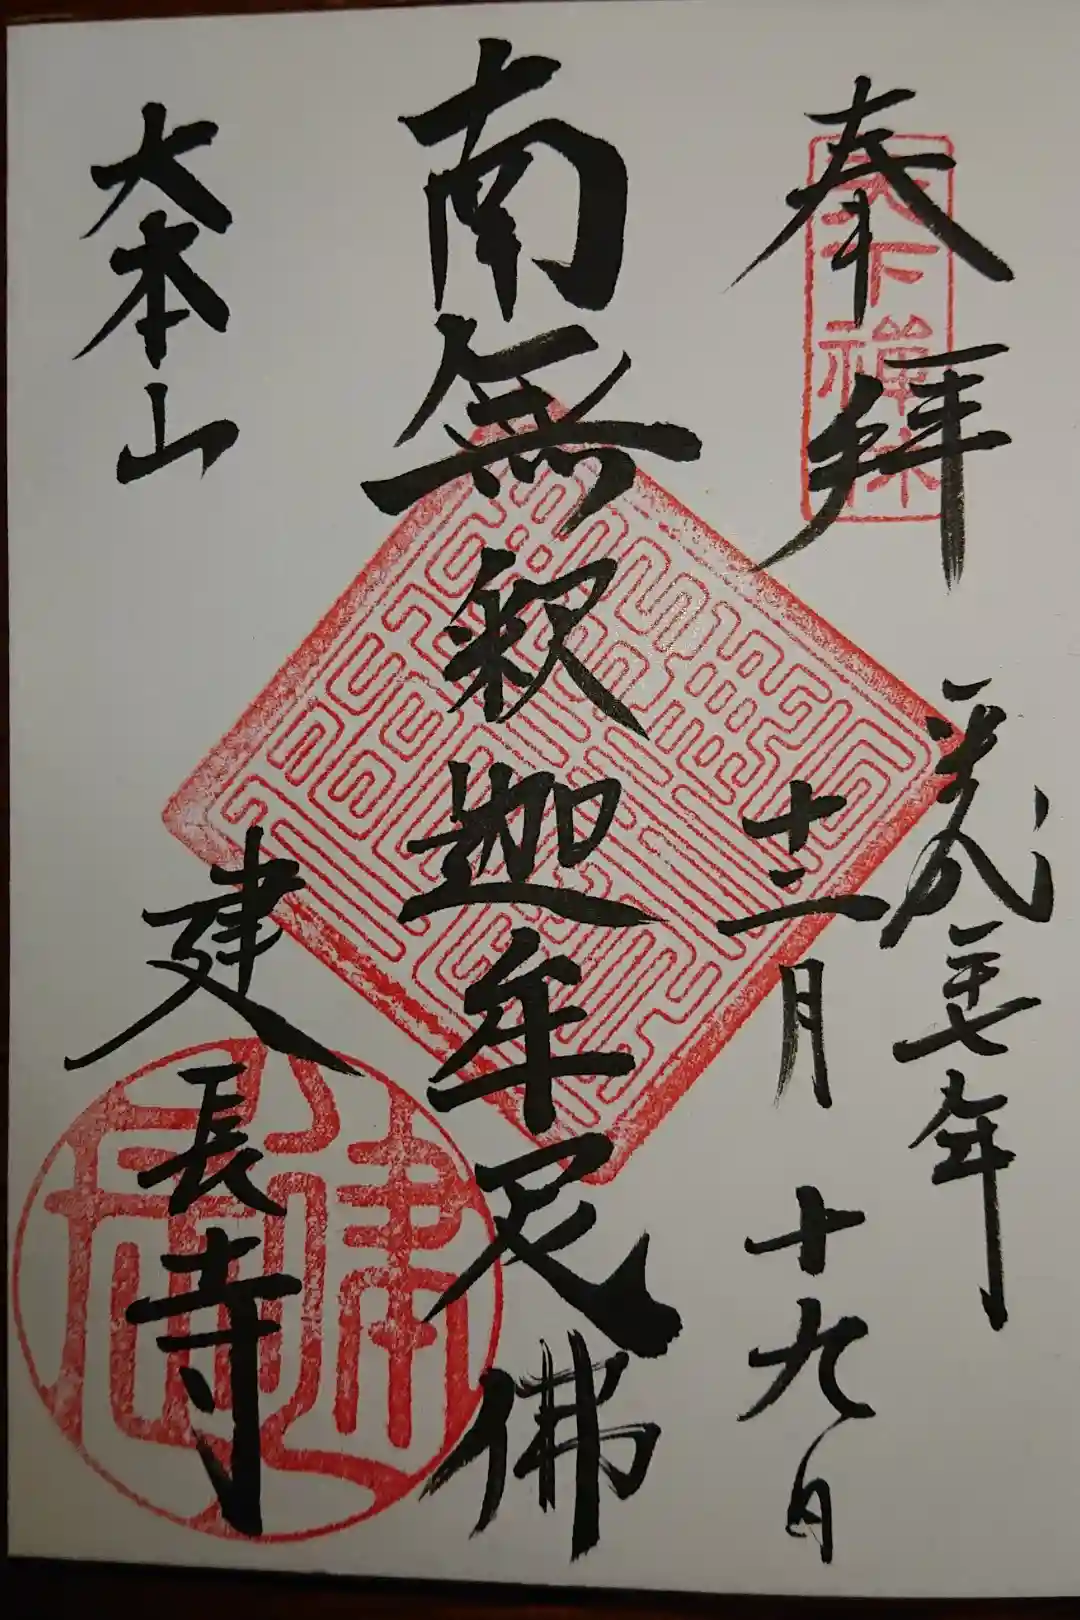 奉拝
天下禅林
平成二十七年
十二月十九日
南無釈迦牟尼佛
大本山
建長寺